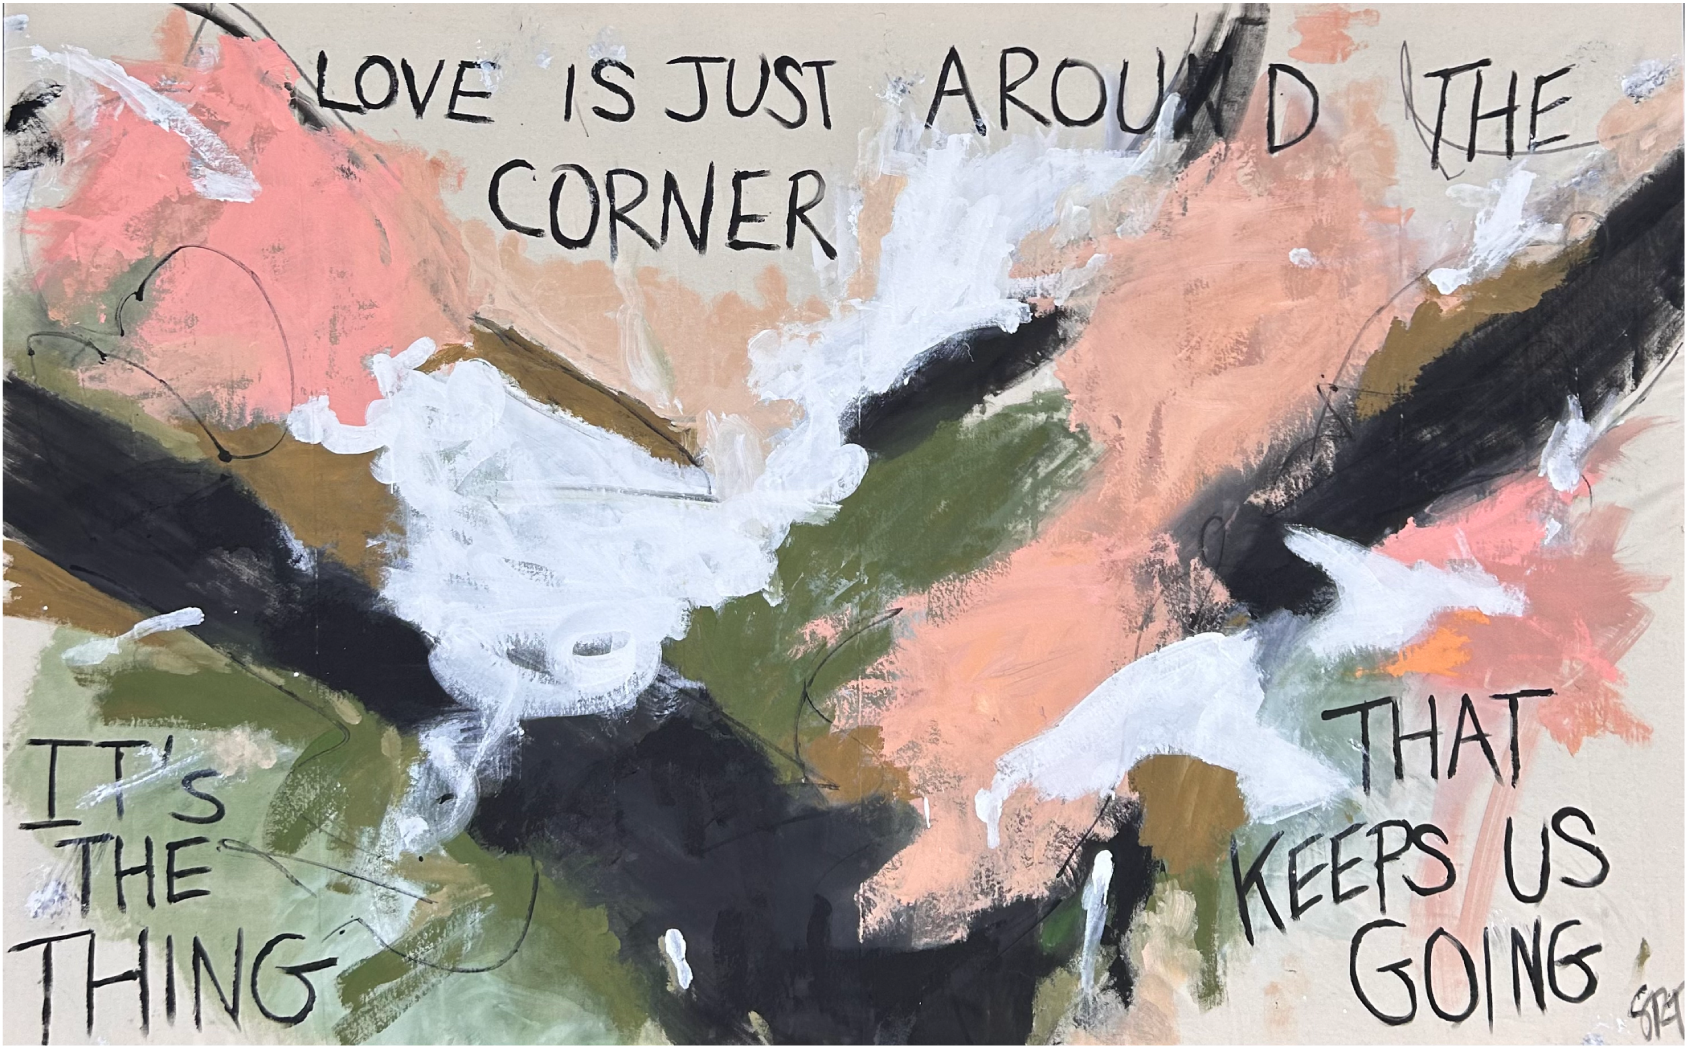 LOVE IS JUST AROUND THE
CORNER
IT'S
THE
THING
THAT
KEEPS US
GOING